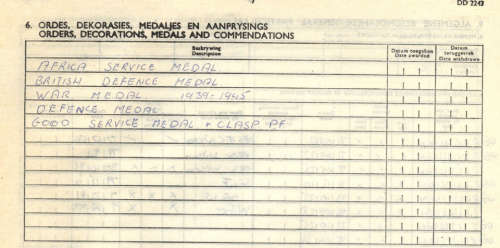 DD 2242
6. ORDES, DEKORASIES, MEDALJES EN AANPRYSINGS
ORDERS, DECORATIONS, MEDALS AND COMMENDATIONS
Beskrywing
Description
Datum toegeken
Date awarded
Datum teruggetrek
Date withdrawn
AFRICA SERVICE MEDAL
BRITISH DEFENCE MEDAL
WAR MEDAL 1939-1945
DEFENCE MEDAL
GOOD SERVICE MEDAL + CLASP PF